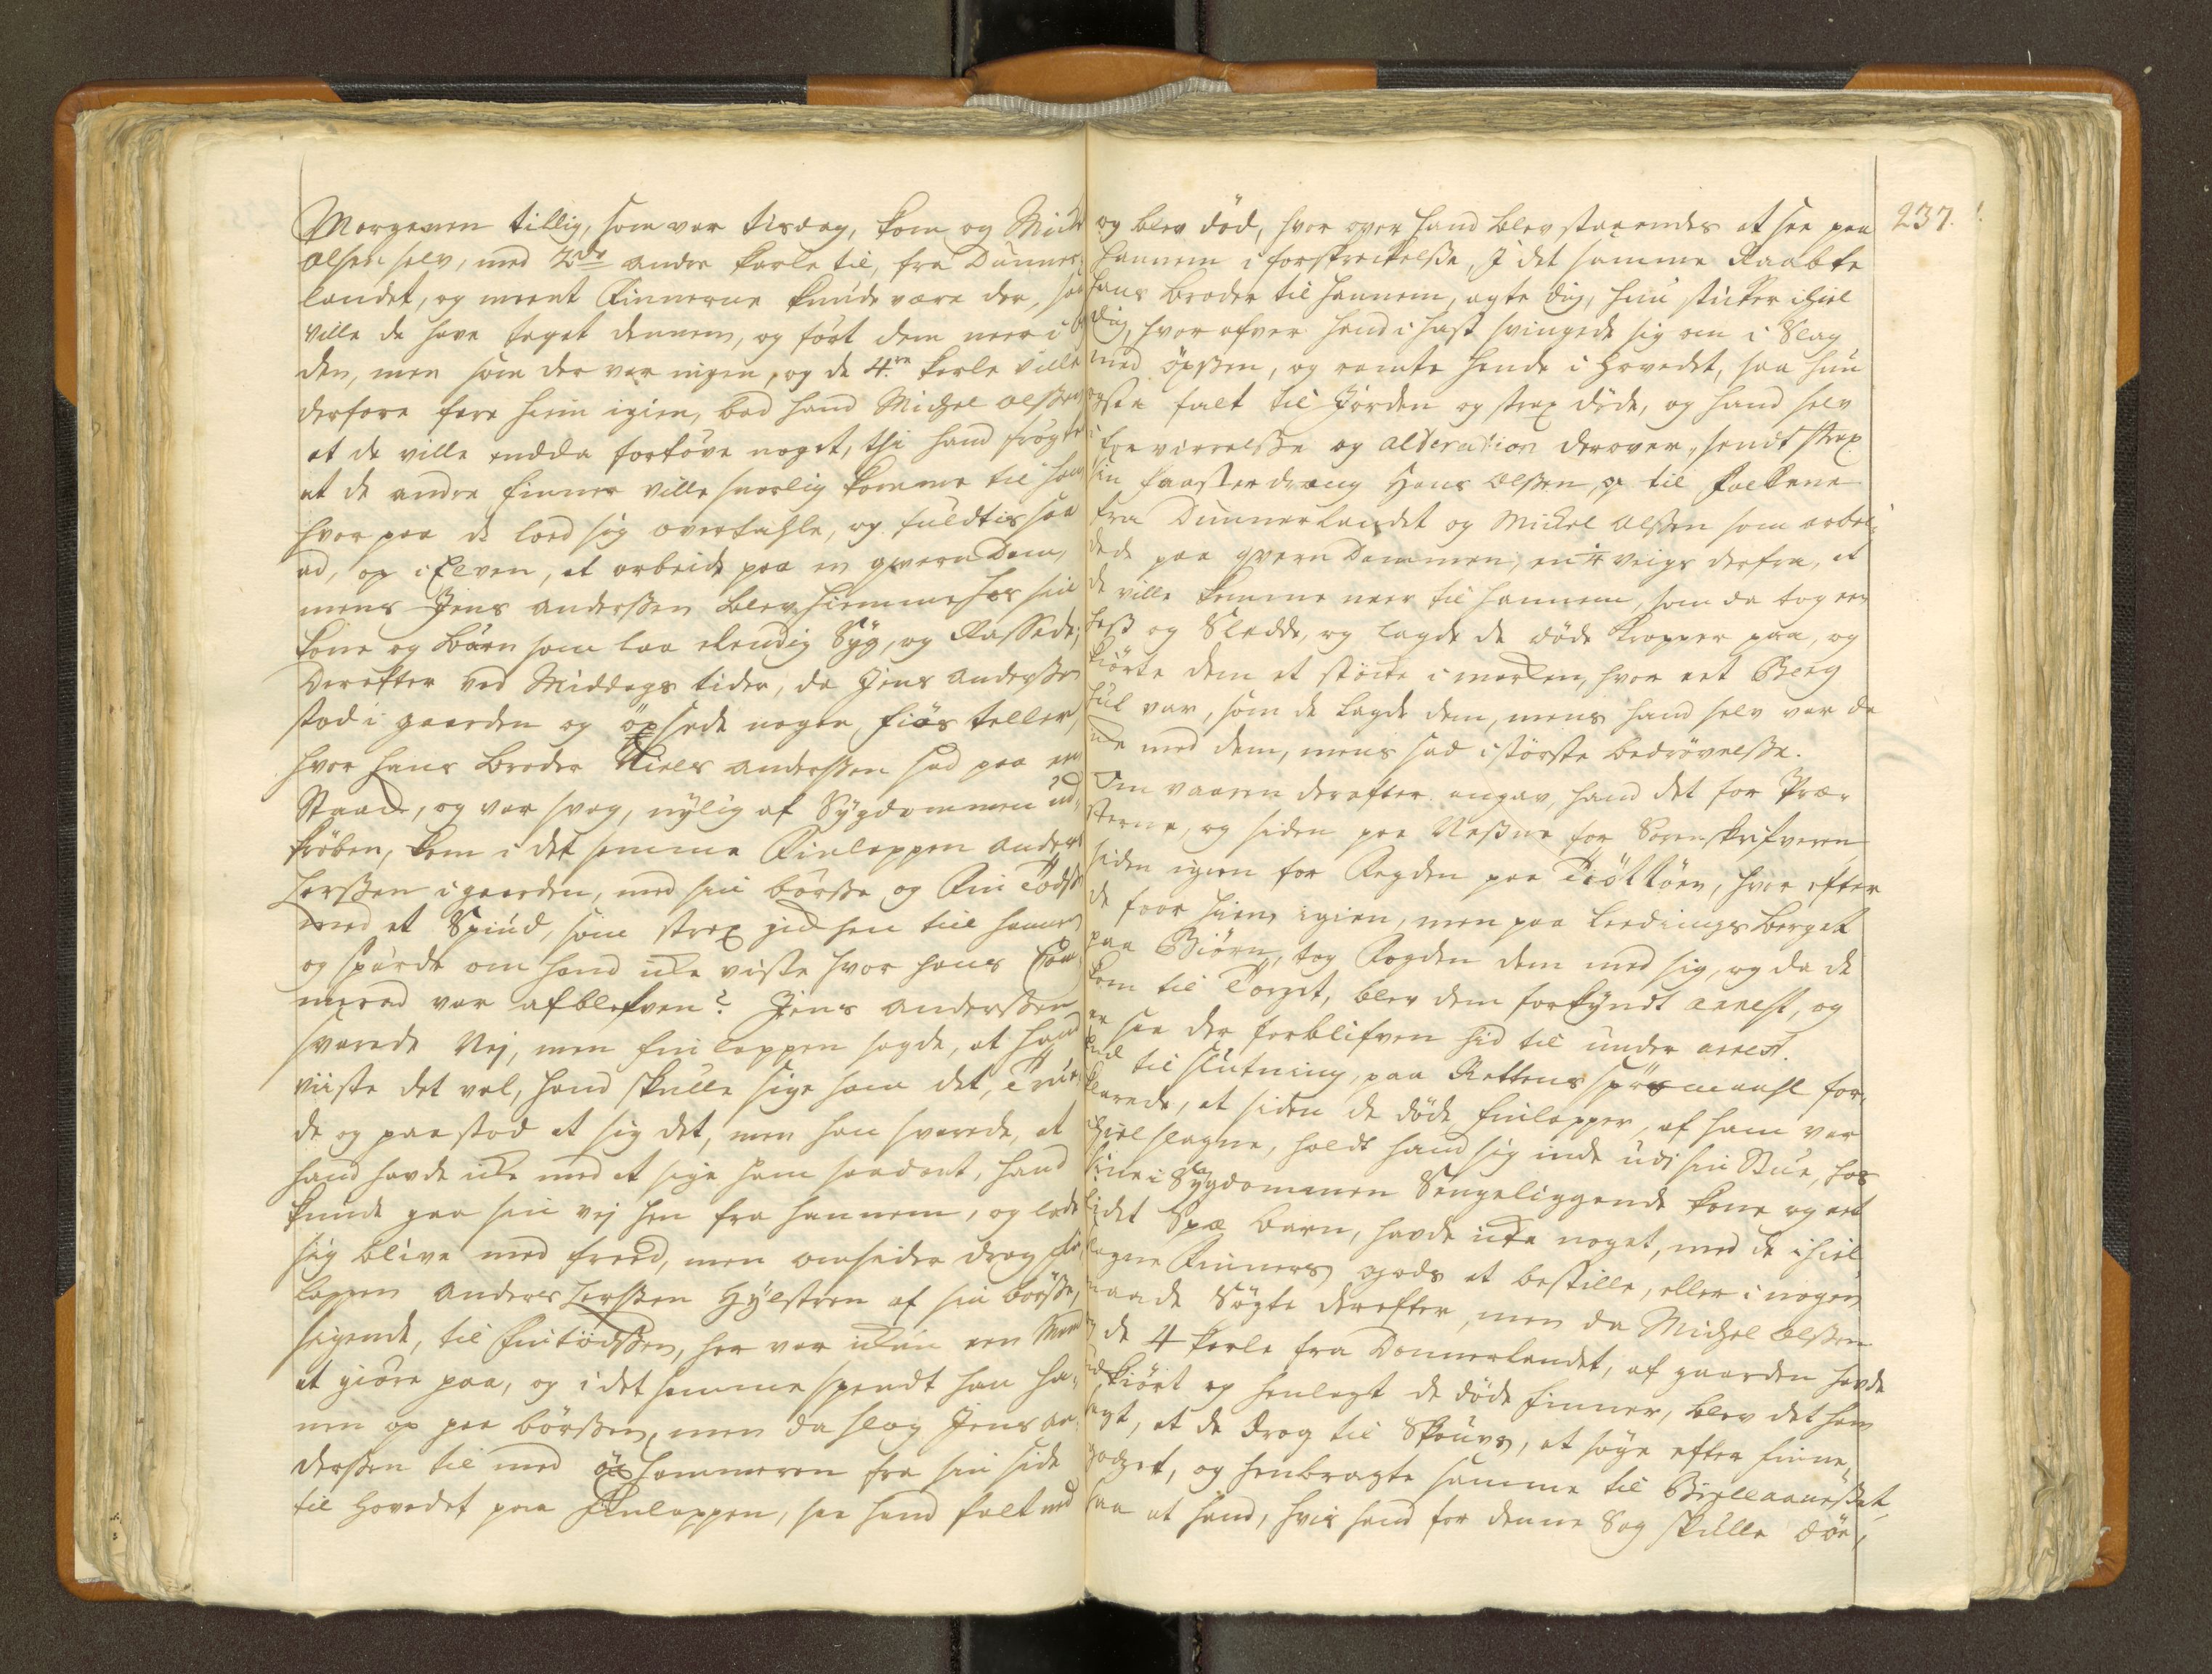 Morgenen tillig, som var tisdag, kom og Mich
olsen selv, med 2de andre karle til, fra Dunner-
landet, og meent Finnerne kunde være der, saa
ville de have taget dennem, og fört dem neer i
den, men som der var ingen, og de 4re karle ville
derfore fare hiem igien, bad hand Michel olssen
at de ville endda fortöve noget, thi hand frögte
at de andre finner ville snarlig komme til ham
hvor paa de loed sig overtahle, og fuldtis saa
ad, op i Elven, at arbeide paa en qvern Dam,
mens Jens anderssen blev hiemme hos sin
kone og börn som laa elendig Syg, og Rassede;
Derefter ved Middags tider, da Jens anderssen
stod i gaarden og öxsede nogen fiös teller,
hvor hans broder Niels anderssen sad paa en
Staad, og var svag, nylig af Sygdommen ud-
kröben, kom i det samme Finlappen anders
Larssen i gaarden, med sin börsse og Fin Tödssen
med et Spiud, som strax gik hen til hannem
og spurde om hand icke viste hvor hans Cam-
merad var afblefven? Jens anderssen
svarede Nej, men finlappen sagde, at hand
viiste det vel, hand skulle sige ham det, True-
de og paastod at sig det, men han svarede, at
hand havde icke med at sige ham saadant, hand
kunde gaa sin vej hen fra hannem, og lade
sig blive med freed, men omsider drog fin-
lappen anders Larssen Hylsteren af sin börsse,
sigende, til fintödssen, her var ickun een Mand
at giöre paa, og i det samme spendt han ha-
nen op paa börssen, men da slog Jens an-
derssen til med öxhammeren fra sin side
til Hovedet paa Finlappen, saa hand falt ned
237.
og blev död, hvor over hand blev staaendes at see paa
hannem i forskreckelsse, I det samme Raabte
hans broder til hannem, agte dig, hun sticker ihiel
dig, hvor ofver hand i hast svingede sig om i Slag
med öxssen, og ramte hende i Hovedet, saa hun
ogsaa falt til Jorden og strax döde, og hand selv
i forvirrelsse og alteration derover, sendt strax
sin faasterdreng Hans olssen, op til folkene
fra Dunnerlandet og Mickel olssen som arbei-
dede paa qvern Dammen, en 1/4 veigs derfra, at
de ville komme neer til hannem, som da tog een
Hest og Sledde, og lagde de döde kropper paa, og
kiörte dem et stöcke i marken, hvor eet Berg
hul var, som de lagde dem, mens hand selv var da
icke med dem, mens sad i störste bedrövelsse.
Om vaaren derefter angav, hand det for Præ-
sterne, og siden paa Nessne for Sorenskrifveren
siden igien for Fogden paa Tiöttöen, hvor efter
de foor hiem igien, men paa Leedings berget
paa Biörn, tog Fogden dem med sig, og da de
kom til Torget, blev dem forkyndt arrest, og
er saa der forblifven hid til under arrest.
End til slutning, paa Rettens spörsmaahl for-
klarede, at siden de döde finlapper, af ham var
ihiel slagne, holdt hand sig inde udi sin Stue, hos
sine i Sygdommen Sengeliggende kone og eet
lidet Spæ barn, havde icke noget, med de ihiel
slagne Finners gods at bestille, eller i nogen
maade Sögte derefter, men da Michel olssen
og de 4 karle fra Donnerlandet, af gaarden havde
udkiört og henlagt de döde finner, blev det ham
sagt, at de drog til Skouvs, at söge efter finne-
godset, og henbragte samme til Biellaanesset,
saa at hand, hvis hand for denne Sag skulle döe,